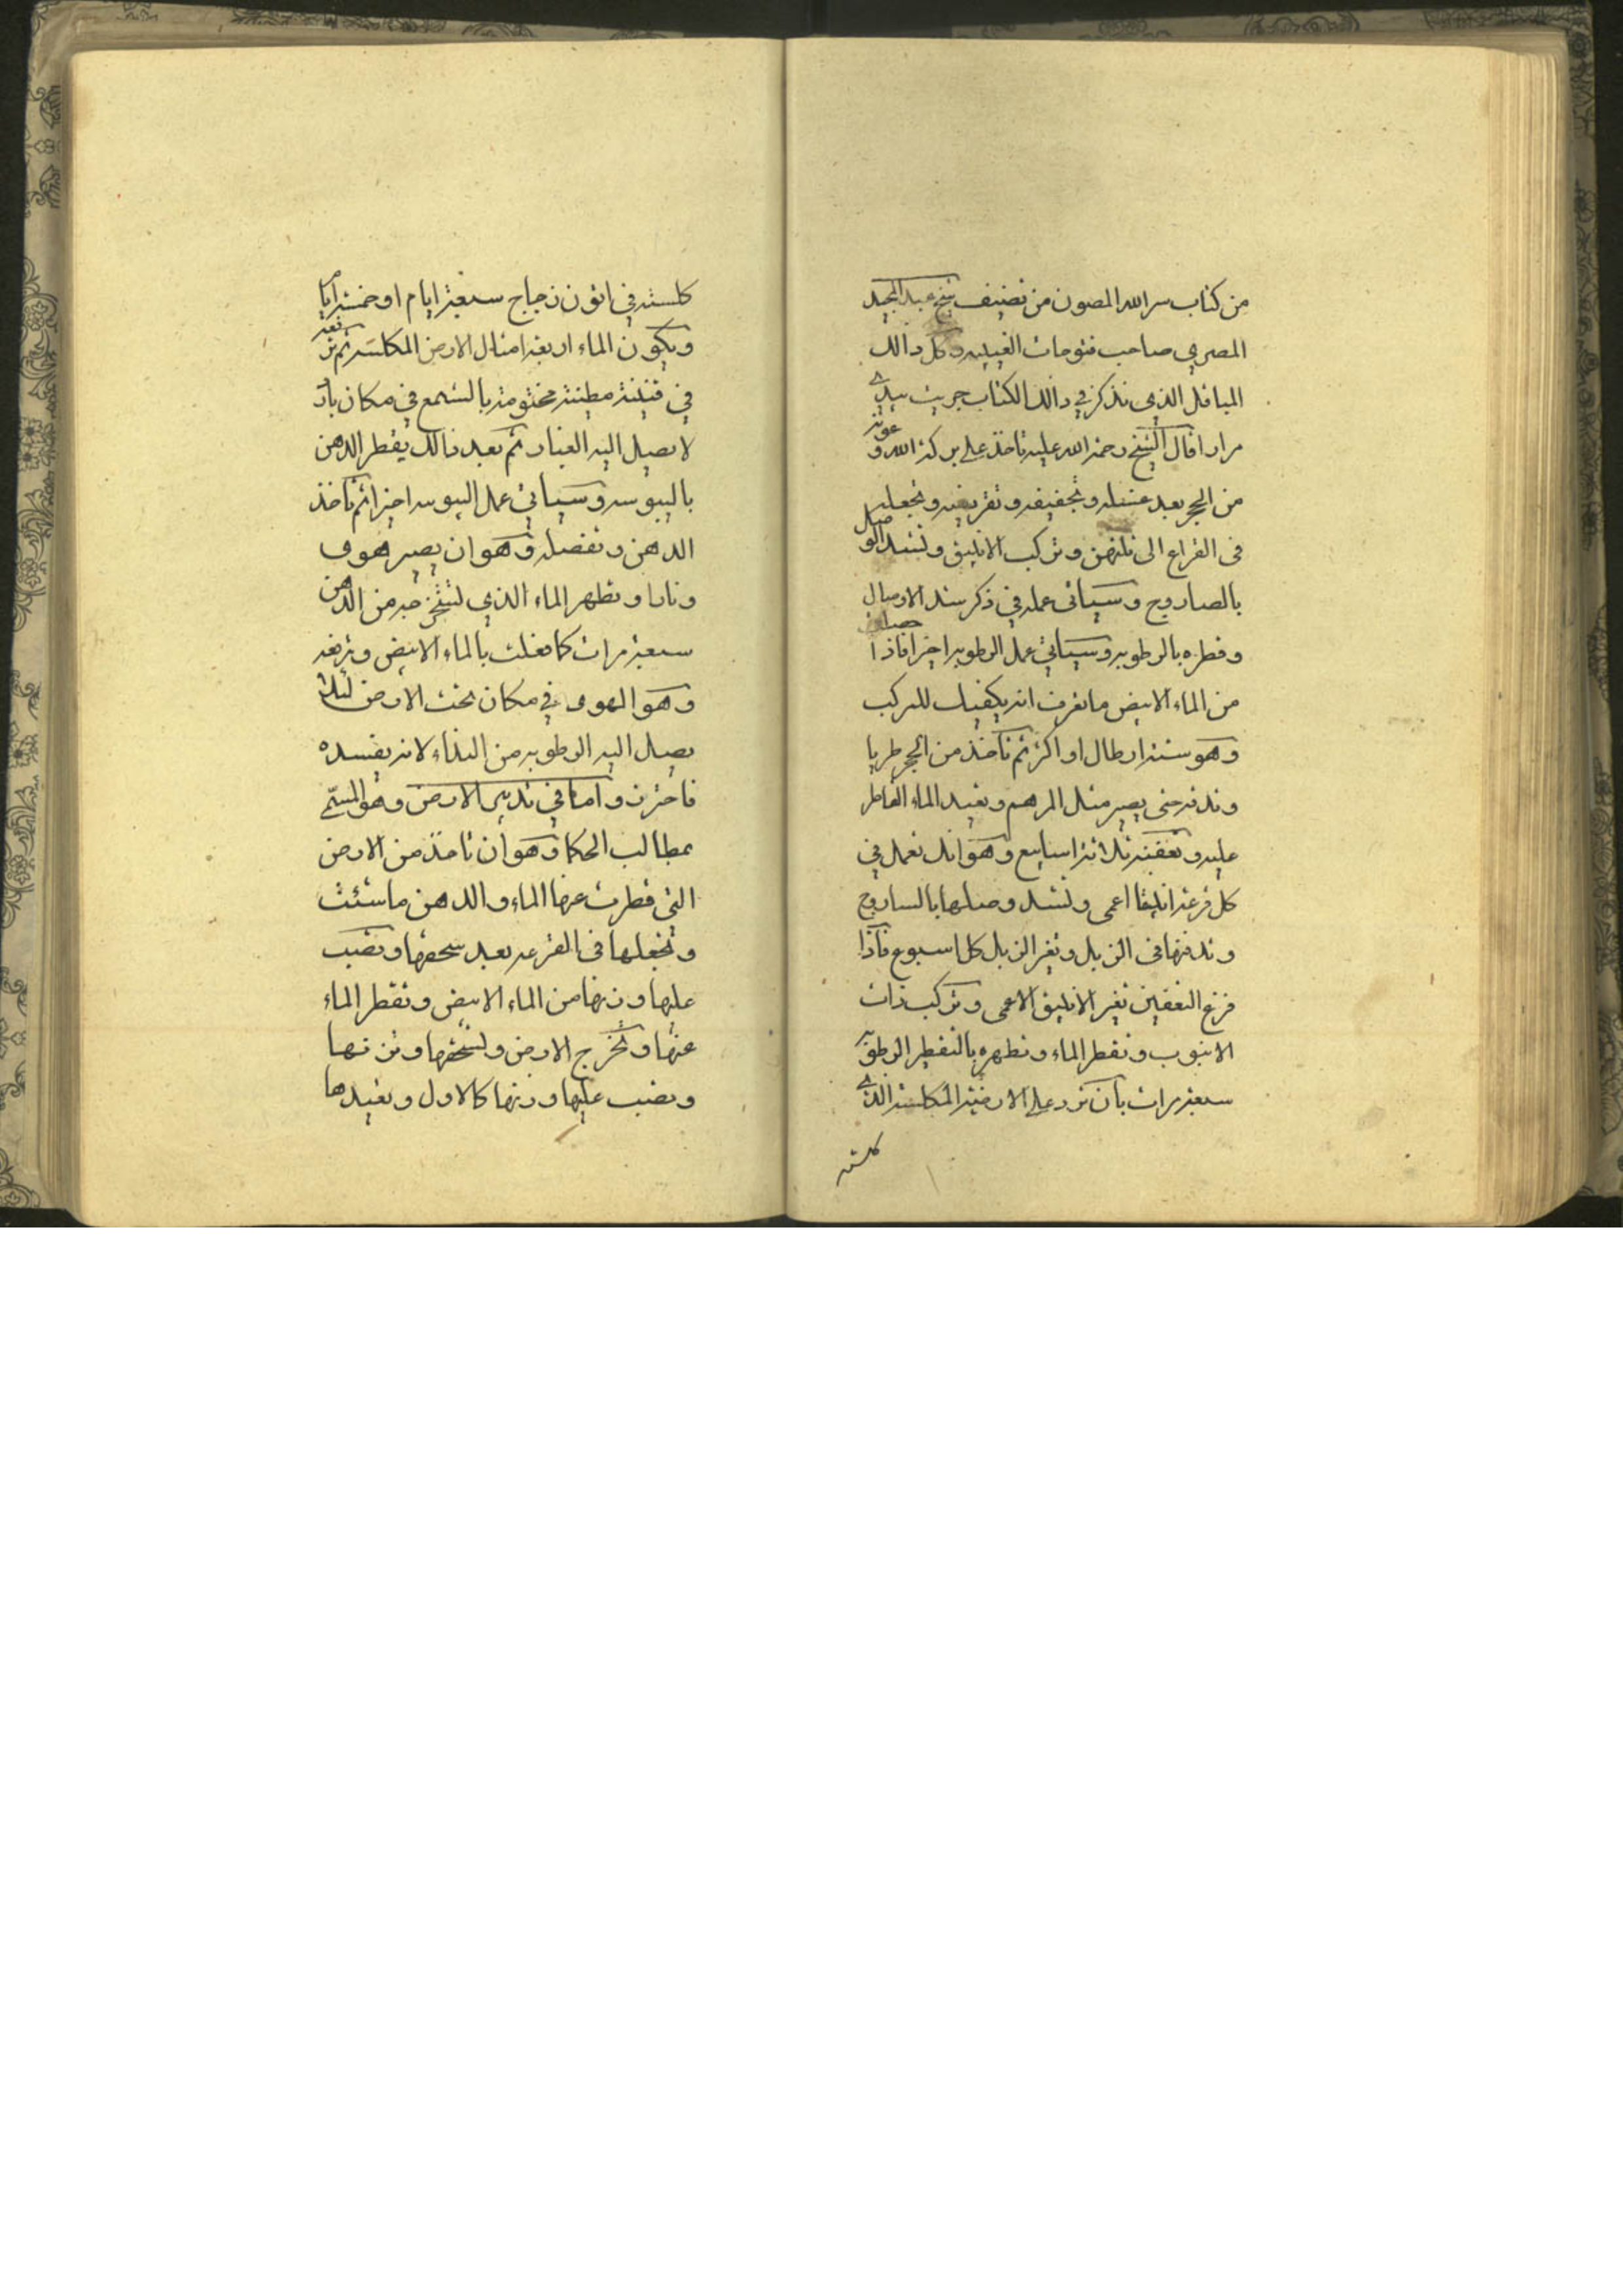 من كتاب سر الله المصون من تصنيف شيخ عبد المجيد
المصري صاحب فتوحات الغيبيه وكل دالك
المباقل الذي نذكر في دالك الكتاب جربت بيدي
مرارا قال الشيخ رحمة الله عليه تاخذ على بركة الله وعونه
من الحجر بعد غسله وتجفيفه وتقريضه وتجعله
في القراع الى ثلثهن وتركب الانبيق وتشد الوصل
بالصاروج وسياتي عمله في ذكر سند الاوصال
وقطره بالرطوبه وسياتي عمل الرطوبه اخيرا فاذا حصل
من الماء الابيض ما تعرف انه يكفيك للتركيب
وهو ستة ارطال او اكثر ثم تاخذ من الحجر طريا
وتدقه حتى يصير مثل المرهم وتعيد الماء القاطر
عليه وتعفنه ثلاثة اسابيع وهو انك تعمل في
كل قرعة انبيقا اعمى وتشد وصلها بالساروج
وتدفنها في الزبل وتغير الزبل كل اسبوع فاذا
فرغ التعفين تغير الانبيق الاعمى وتركب ذات
الانبوب وتقطر الماء وتطهره بالتقطير الرطوبه
سبعة مرات بان ترد على الارضية المكلسة الذي
كلسته
كلسته في اتون زجاج سبعة ايام او خمسة اياما
ويكون الماء اربعة امثال الارض المكلسة ثم ترفعه
في قنينة مطينة مختومة بالشمع في مكان بارد
لا يصيل اليه الغبار ثم بعد دالك يقطر الدهن
باليبوسه وسياتي عمل اليبوسه اخيرا ثم تاخذ
الدهن وتفصله وهو ان يصير هوى
ونارا وتطهر الماء الذي تستخرجه من الدهن
سبعة مرات كما فعلت بالماء الابيض وترفعه
وهو الهوى في مكان تحت الارض لئلا
يصيل اليه الرطوبه من النداء لانه يفسده
فاحترز واما في تدبير الارض وهو المسمى
بمطالب الحكما وهو ان تاخذ من الارض
التي قطرت عنها الماء والدهن ما شئت
وتجعلها في القرعه بعد سحقها وتصب
عليها وزنها من الماء الابيض وتقطر الماء
عنها وتخرج الارض وتسحقها وتزنها
وتصب عليها وزنها كالاول وتعيدها